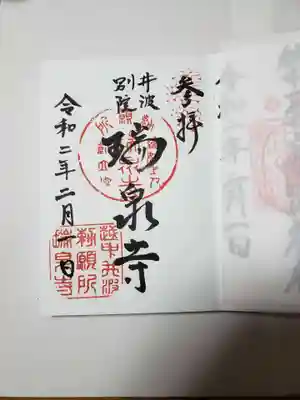 参拝
井波
別院
瑞泉寺
令和二年二月一日
越中井波
勅願所
瑞泉寺